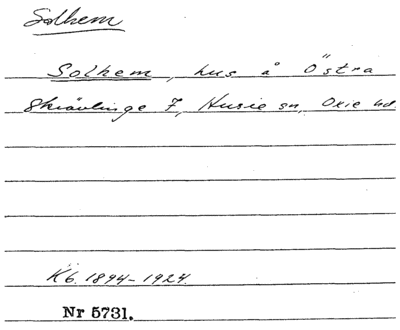 Solhem
Solhem, hus å Östra
Skrävlinge 7, Husie sn, Oxie hd
Kb. 1894-1924.
Nr 5731.